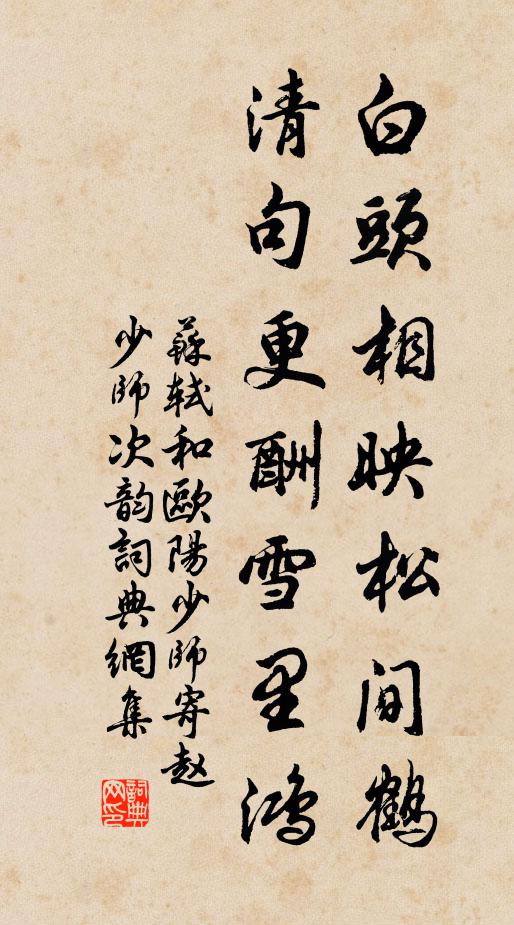 白頭相映松間鶴
清句更酬雪里鴻
蘇轼和歐陽少師寄赵
少師次韵詞典網集
詞典
网印